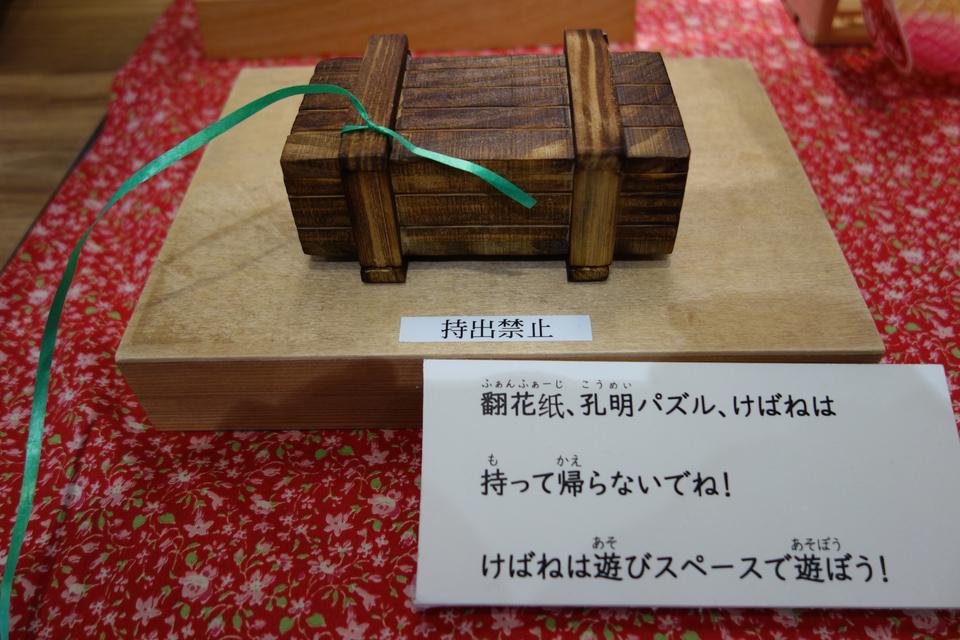 持出禁止
ふぁんふぁーじ こうめい
翻花纸、孔明パズル、けばねは
も かえ
持って帰らないでね!
あそ あそぼう
けばねは遊びスペースで遊ぼう!